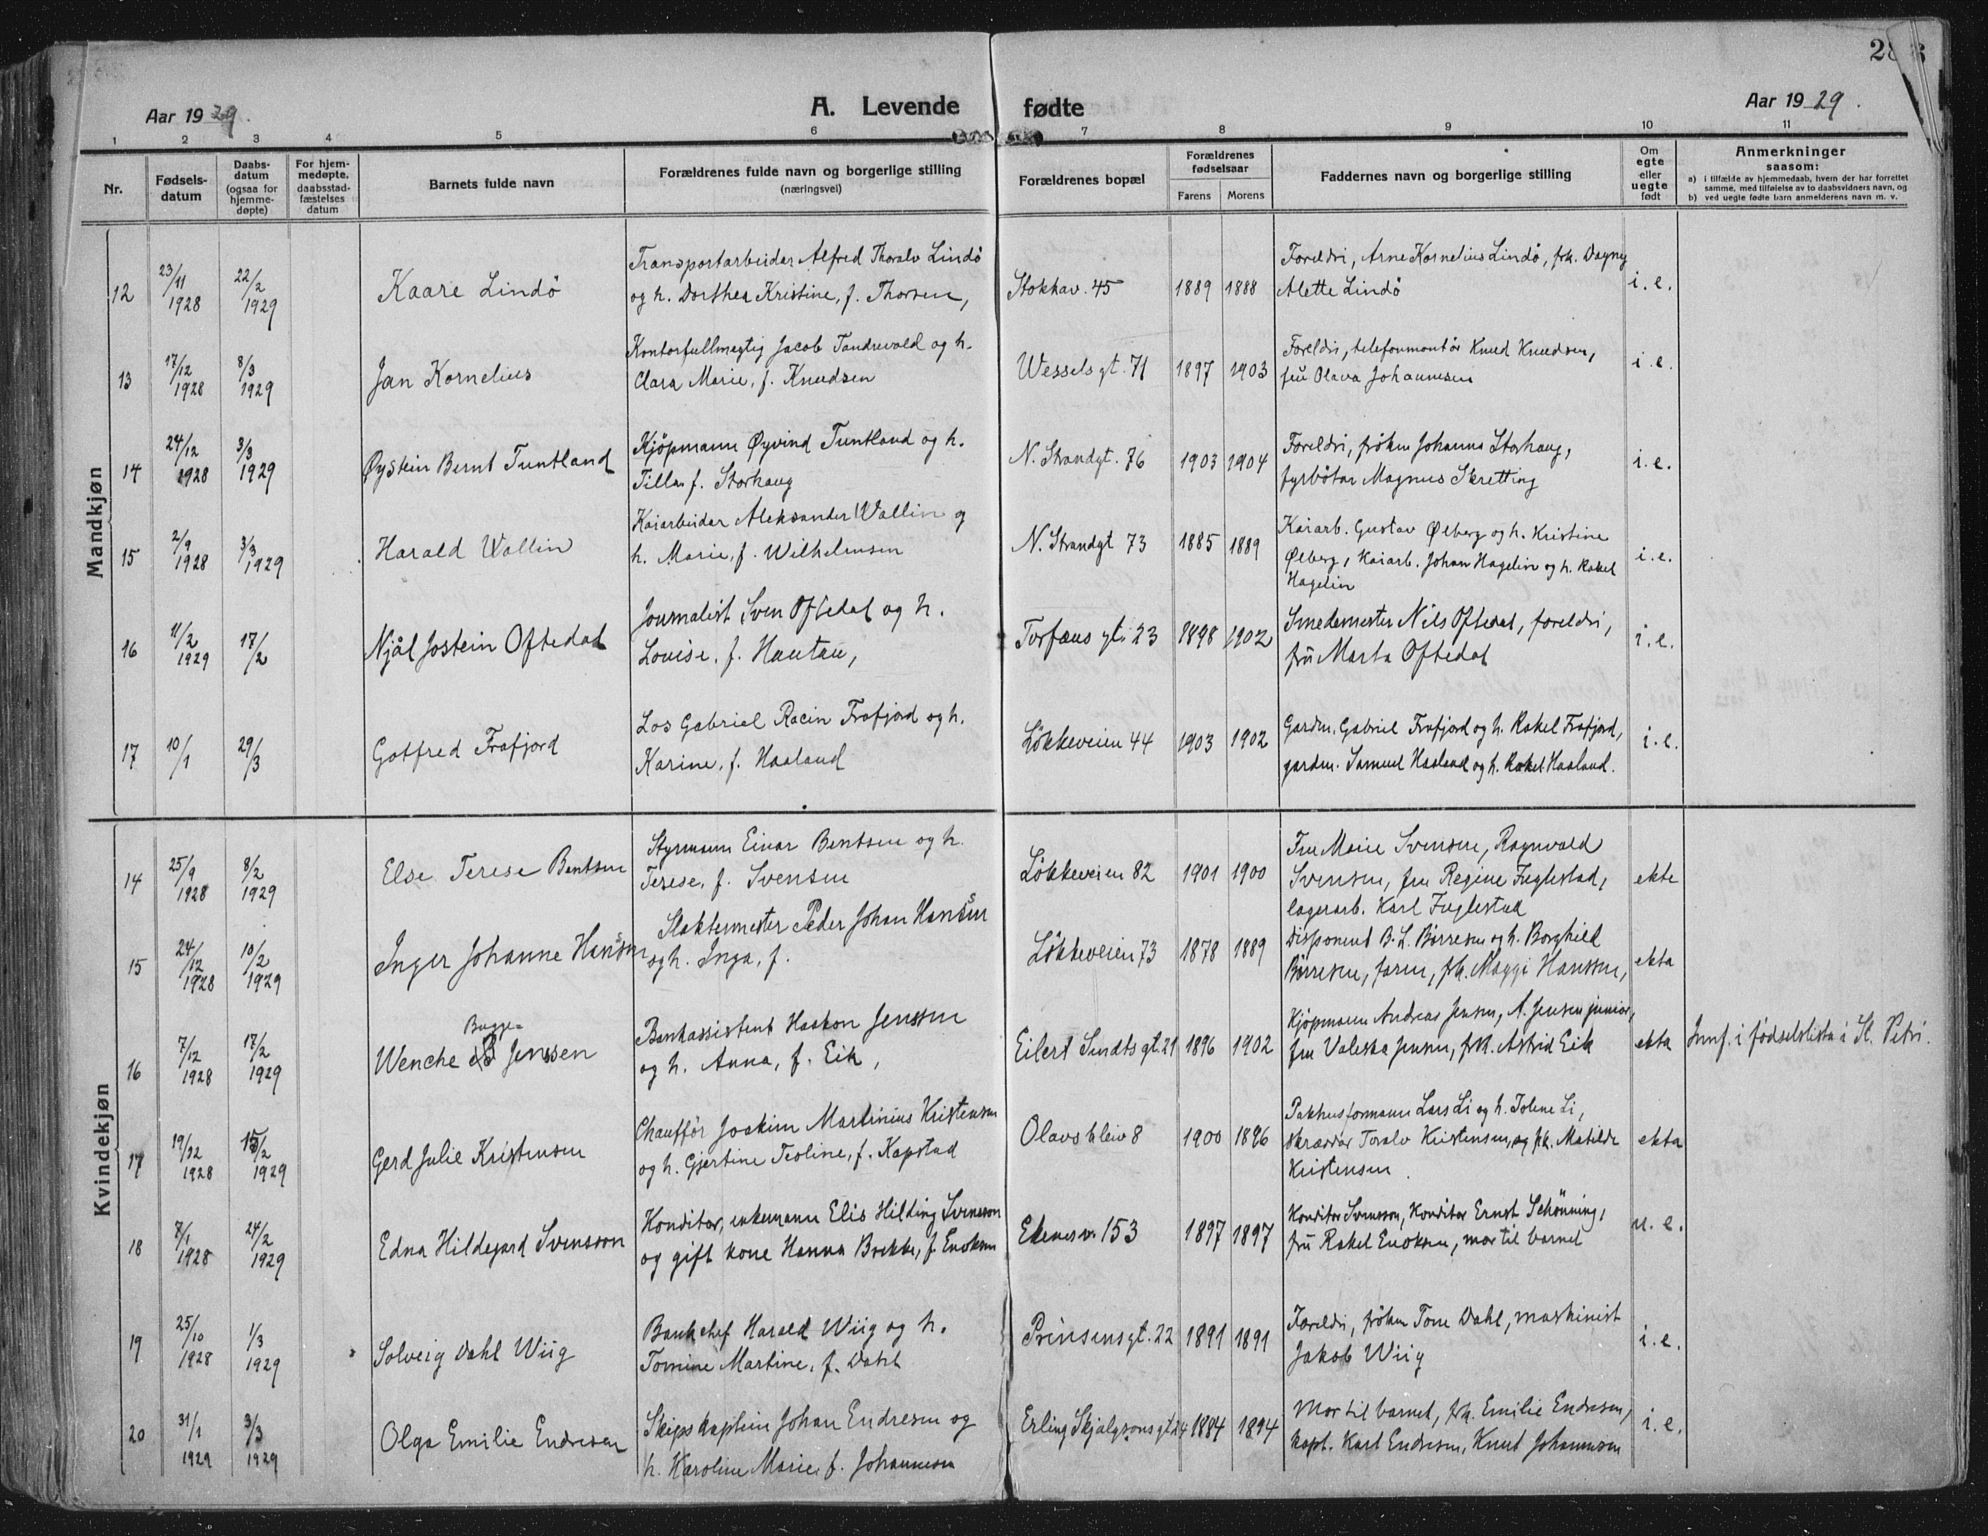 28
Aar 1929.
A. Levende fødte
Aar 1929.
1 2 3 4 5 6 7 8 9 10 11
Nr.
Fødsels-
datum
Daabs-
datum
(ogsaa for
hjemme-
døpte)
For hjem-
medøpte.
daabsstad-
fæstelses
datum
Barnets fulde navn
Forældrenes fulde navn og borgerlige stilling
(næringsvei)
Forældrenes bopæl
Forældrenes
fødselsaar
Farens Morens
Faddernes navn og borgerlige stilling
Om
egte
eller
uegte
født
Anmerkninger
saasom:
a) i tilfælde av hjemmedaab, hvem der har forrettet
samme, med tilføielse av to daabsvidners navn, og
b) ved uegte fødte barn anmelderens navn m. v.
Mandkjøn
12 23/11 1928 22/2 1929 Kaare Lindö
Transportarbeidar Alfred Thoralv Lindö
og h. Dorthea Kristine, f. Thorsen,
Stokkav. 45 1889 1888
Foreldri, Arne Kornelius Lindö, frk. Dagny
Alette Lindö
i. e.
13 17/12 1928 8/3 1929 Jan Kornelius
Kontorfullmegtig Jacob Tandrevold og h.
Clara Marie, f. Knudsen
Wesselsgt. 71 1897 1903
Foreldri, telefonmontör Knud Knudsen,
fru Olava Johannesen
i. e.
14 24/12 1928 3/3 1929 Øystein Bernt Tuntland
Kjöpmann Øyvind Tuntland og h.
Tilla, f. Storhaug
N. Strandgt. 76 1903 1904
Foreldri, fröken Johanna Storhaug,
fyrbötar Magnus Skretting
i. e.
15 2/9 1928 3/3 1929 Harald Wallin
Kaiarbeidar Aleksander Wallin og
h. Marie, f. Wilhelmsen
N. Strandgt 73 1885 1889
Kaiarb. Gustav Ølberg og h. Kristine
Ølberg, Kaiarb. Johan Hagelin og h. Rakel
Hagelin
i. e.
16 11/2 1929 17/2 Njål Jostein Oftedal
Journalist Sven Oftedal og h.
Louise, f. Hautau,
Torfæusgt. 23 1898 1902
Smedemester Nils Oftedal, foreldri,
fru Marta Oftedal
i. e.
17 10/1 29/3 Gotfred Frafjord
Los Gabriel Racin Frafjord og h.
Karine, f. Haaland
Lökkeveien 44 1903 1902
Gardm. Gabriel Frafjord og h. Rakel Frafjord,
gardm. Samuel Haaland og h. Rakel Haaland.
i. e.
Kvindekjøn
14 25/9 1928 8/2 1929 Else Terese Bentsen
Styrmann Einar Bentsen og h.
Terese, f. Svensen
Lökkeveien 82 1901 1900
Fru Marie Svensen, Ragnvald
Svensen, fru Regine Fuglestad,
lagerarb. Karl Fuglestad
ekte
15 24/12 1928 10/2 1929 Inger Johanne Hansen
Slaktermester Peder Johan Hansen
og h. Inga, f.
Lökkeveien 73 1878 1889
Disponent B. L. Börresen og h. Borghild
Börresen, faren, frk. Maggi Hanssen,
ekta
16 7/12 1928 17/2 1929 Bugge
Wenche B Jenssen
Bankassistent Haakon Jenssen
og h. Anna, f. Eik,
Eilert Sundtsgt. 21 1896 1902
Kjöpmann Andreas Jensen, A. Jensen junior,
fru Valeska Jensen, frk. Astrid Eik
ekta
Innf. i födselslista i St. Petri.
17 19/12 1928 15/2 1929 Gerd Julie Kristensen
Chaufför Joakim Martinius Kristensen
og h. Gjertine Teoline, f. Kapstad
Olavskleiv 8 1900 1896
Pakhusformann Lars Li og h. Tolene Li,
skræddar Toralv Kristensen, og frk. Matilde
Kristensen
ekta
18 7/1 1928 24/2 1929 Edna Hildegard Svensson
Konditor, enkemann Elis Hilding Svensson
og gift kone Hanna Brekke, f. Enoksen
Ekenesv. 153 1897 1897
Konditor Svensson, Konditor Ernst Schönning,
fru Rakel Enoksen, mor til barnet
u. e.
19 25/10 1928 1/3 1929 Solveig Dahl Wiig
Bankchef Harald Wiig og h.
Tomine Martine, f. Dahl
Prinsensgt. 22 1891 1891
Foreldri, fröken Tone Dahl, maskinist
Jakob Wiig
i. e.
20 31/1 1929 3/3 1929 Olga Emilie Endresen
Skipskaptein Johan Endresen og
h. Karoline Marie, f. Johannesen
Erling Skjalgsonsgt 24 1884 1894
Mor til barnet, frk. Emilie Endresen,
kapt. Karl Endresen, Knut Johannesen
i. e.